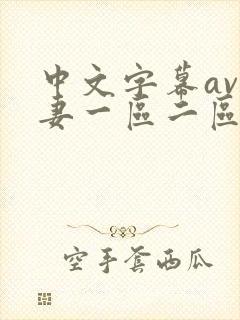 中文字幕av
妻一區二區
空手套西瓜